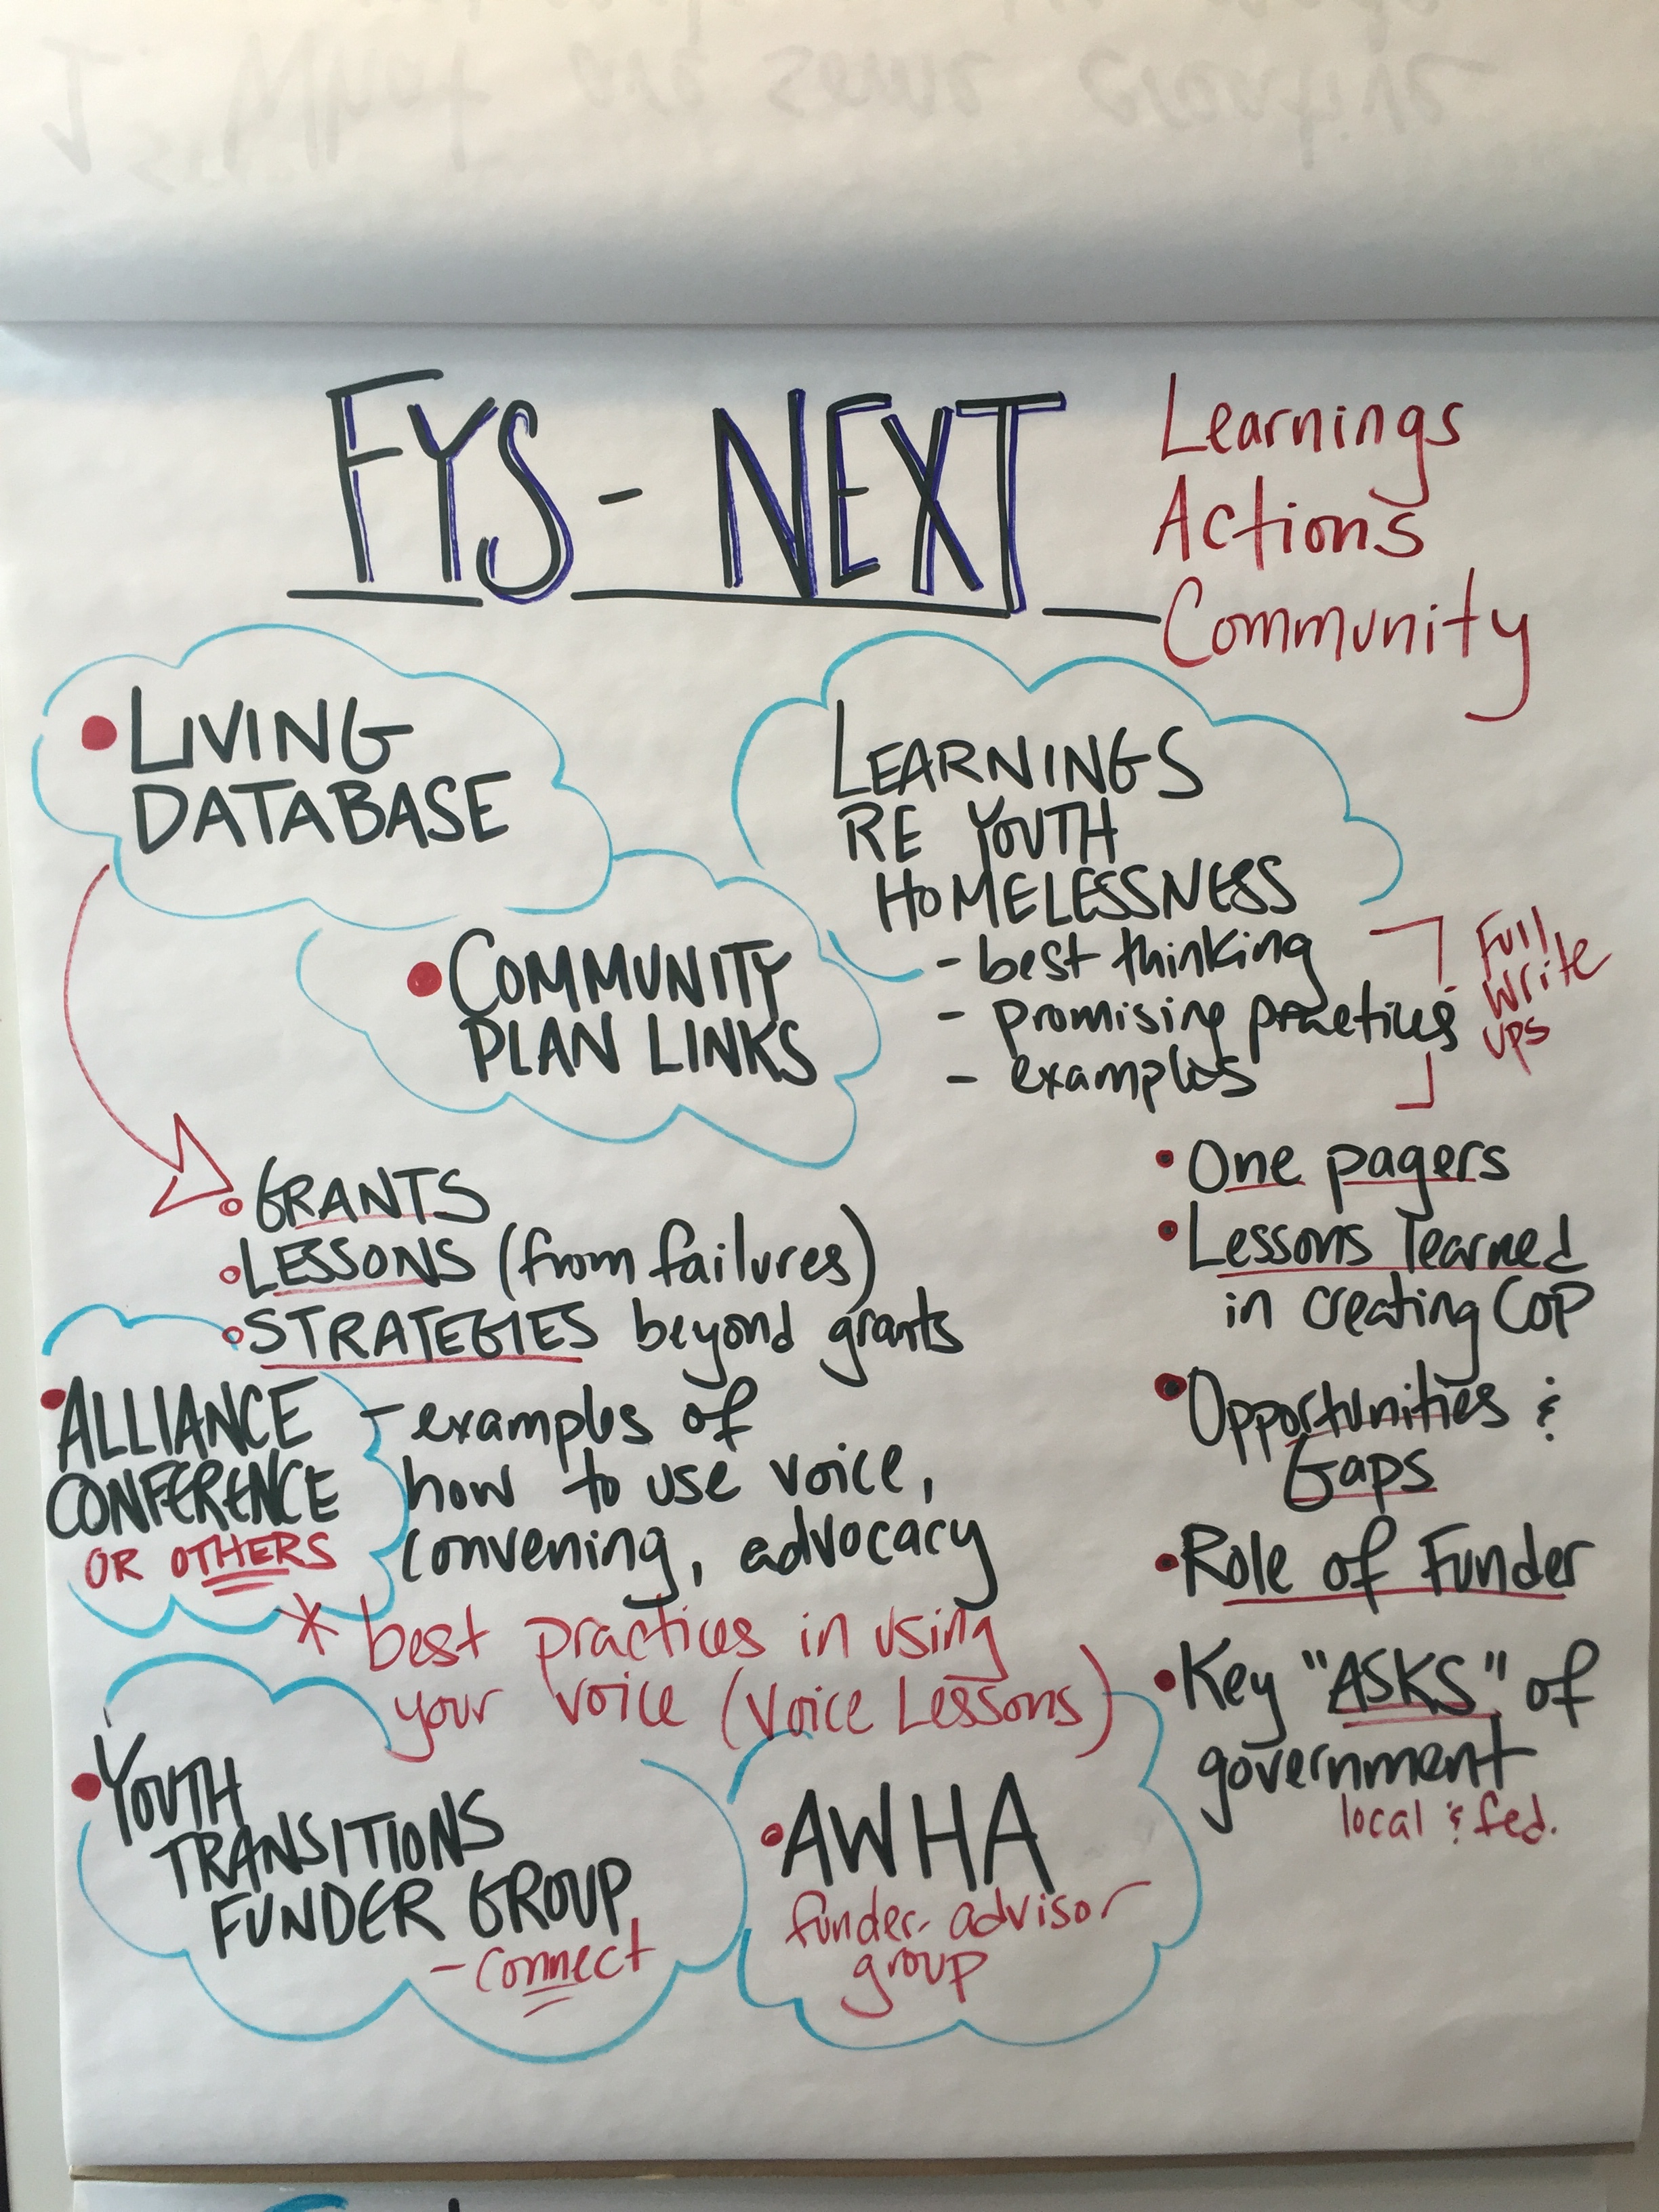 1. What are some creative
FYS - NEXT
Learnings
Actions
Community
• LIVING
DATABASE
• COMMUNITY
PLAN LINKS
LEARNINGS
RE YOUTH
HOMELESSNESS
- best thinking
- promising practices
- examples
Full
write
ups
• GRANTS
• LESSONS (from failures)
• STRATEGIES beyond grants
• ALLIANCE
CONFERENCE
OR OTHERS
- examples of
how to use voice,
convening, advocacy
* best practices in using
your voice (Voice Lessons)
• YOUTH
TRANSITIONS
FUNDER GROUP
- connect
• AWHA
funder advisor
group
• One pagers
• Lessons learned
in creating CoP
• Opportunities &
Gaps
• Role of Funder
• Key "ASKS" of
government
local & fed.